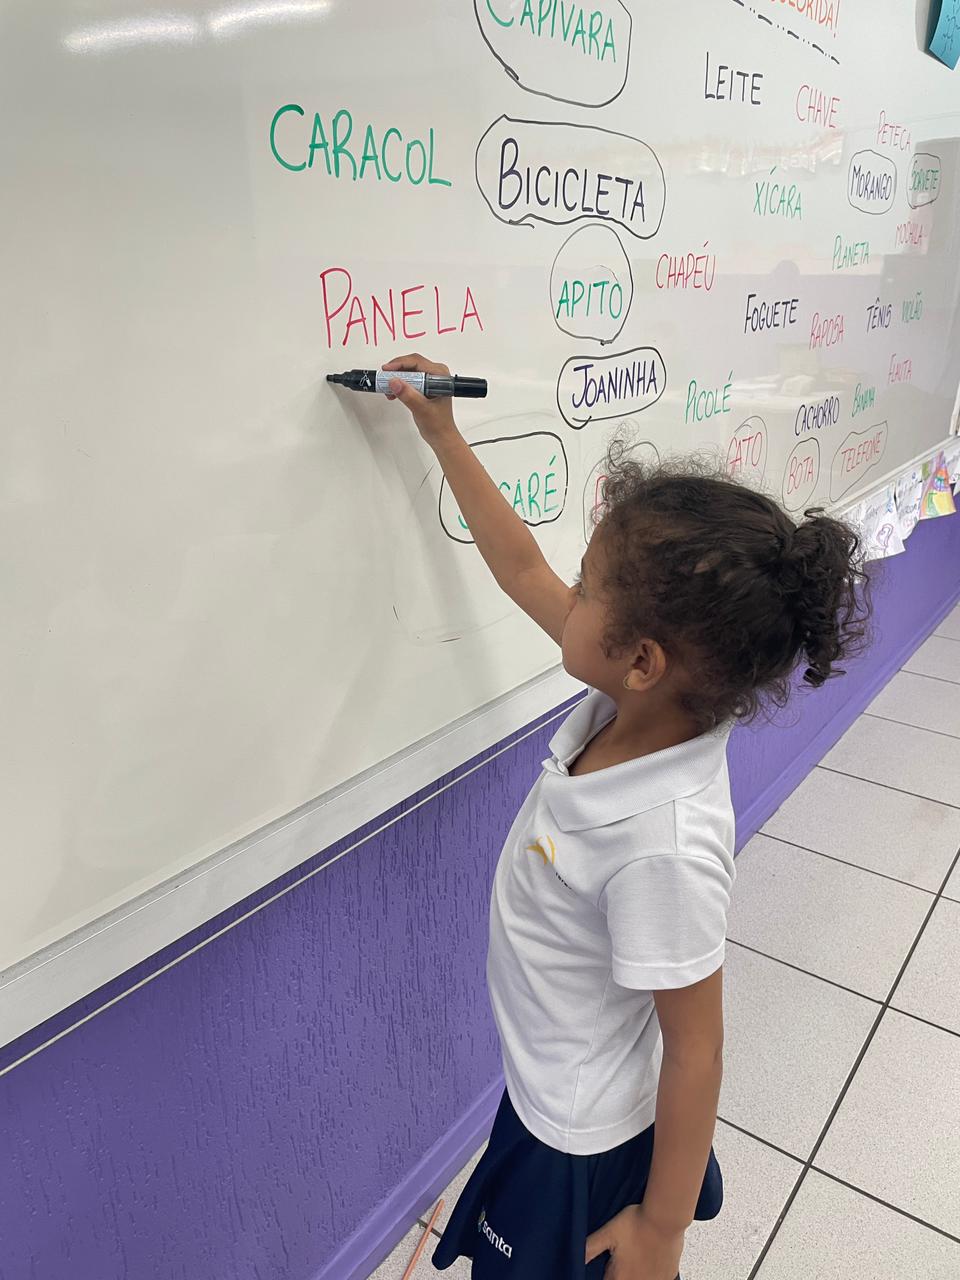 CAPIVARA
COLORIDA!
LEITE
CHAVE
PETECA
CARACOL
BICICLETA
XÍCARA
MORANGO
SORVETE
MOCHILA
PLANETA
CHAPÉU
PANELA
APITO
FOGUETE
RAPOSA
TÊNIS
VIOLÃO
FLAUTA
JOANINHA
PICOLÉ
CACHORRO
BANANA
GATO
BOTA
TELEFONE
santa